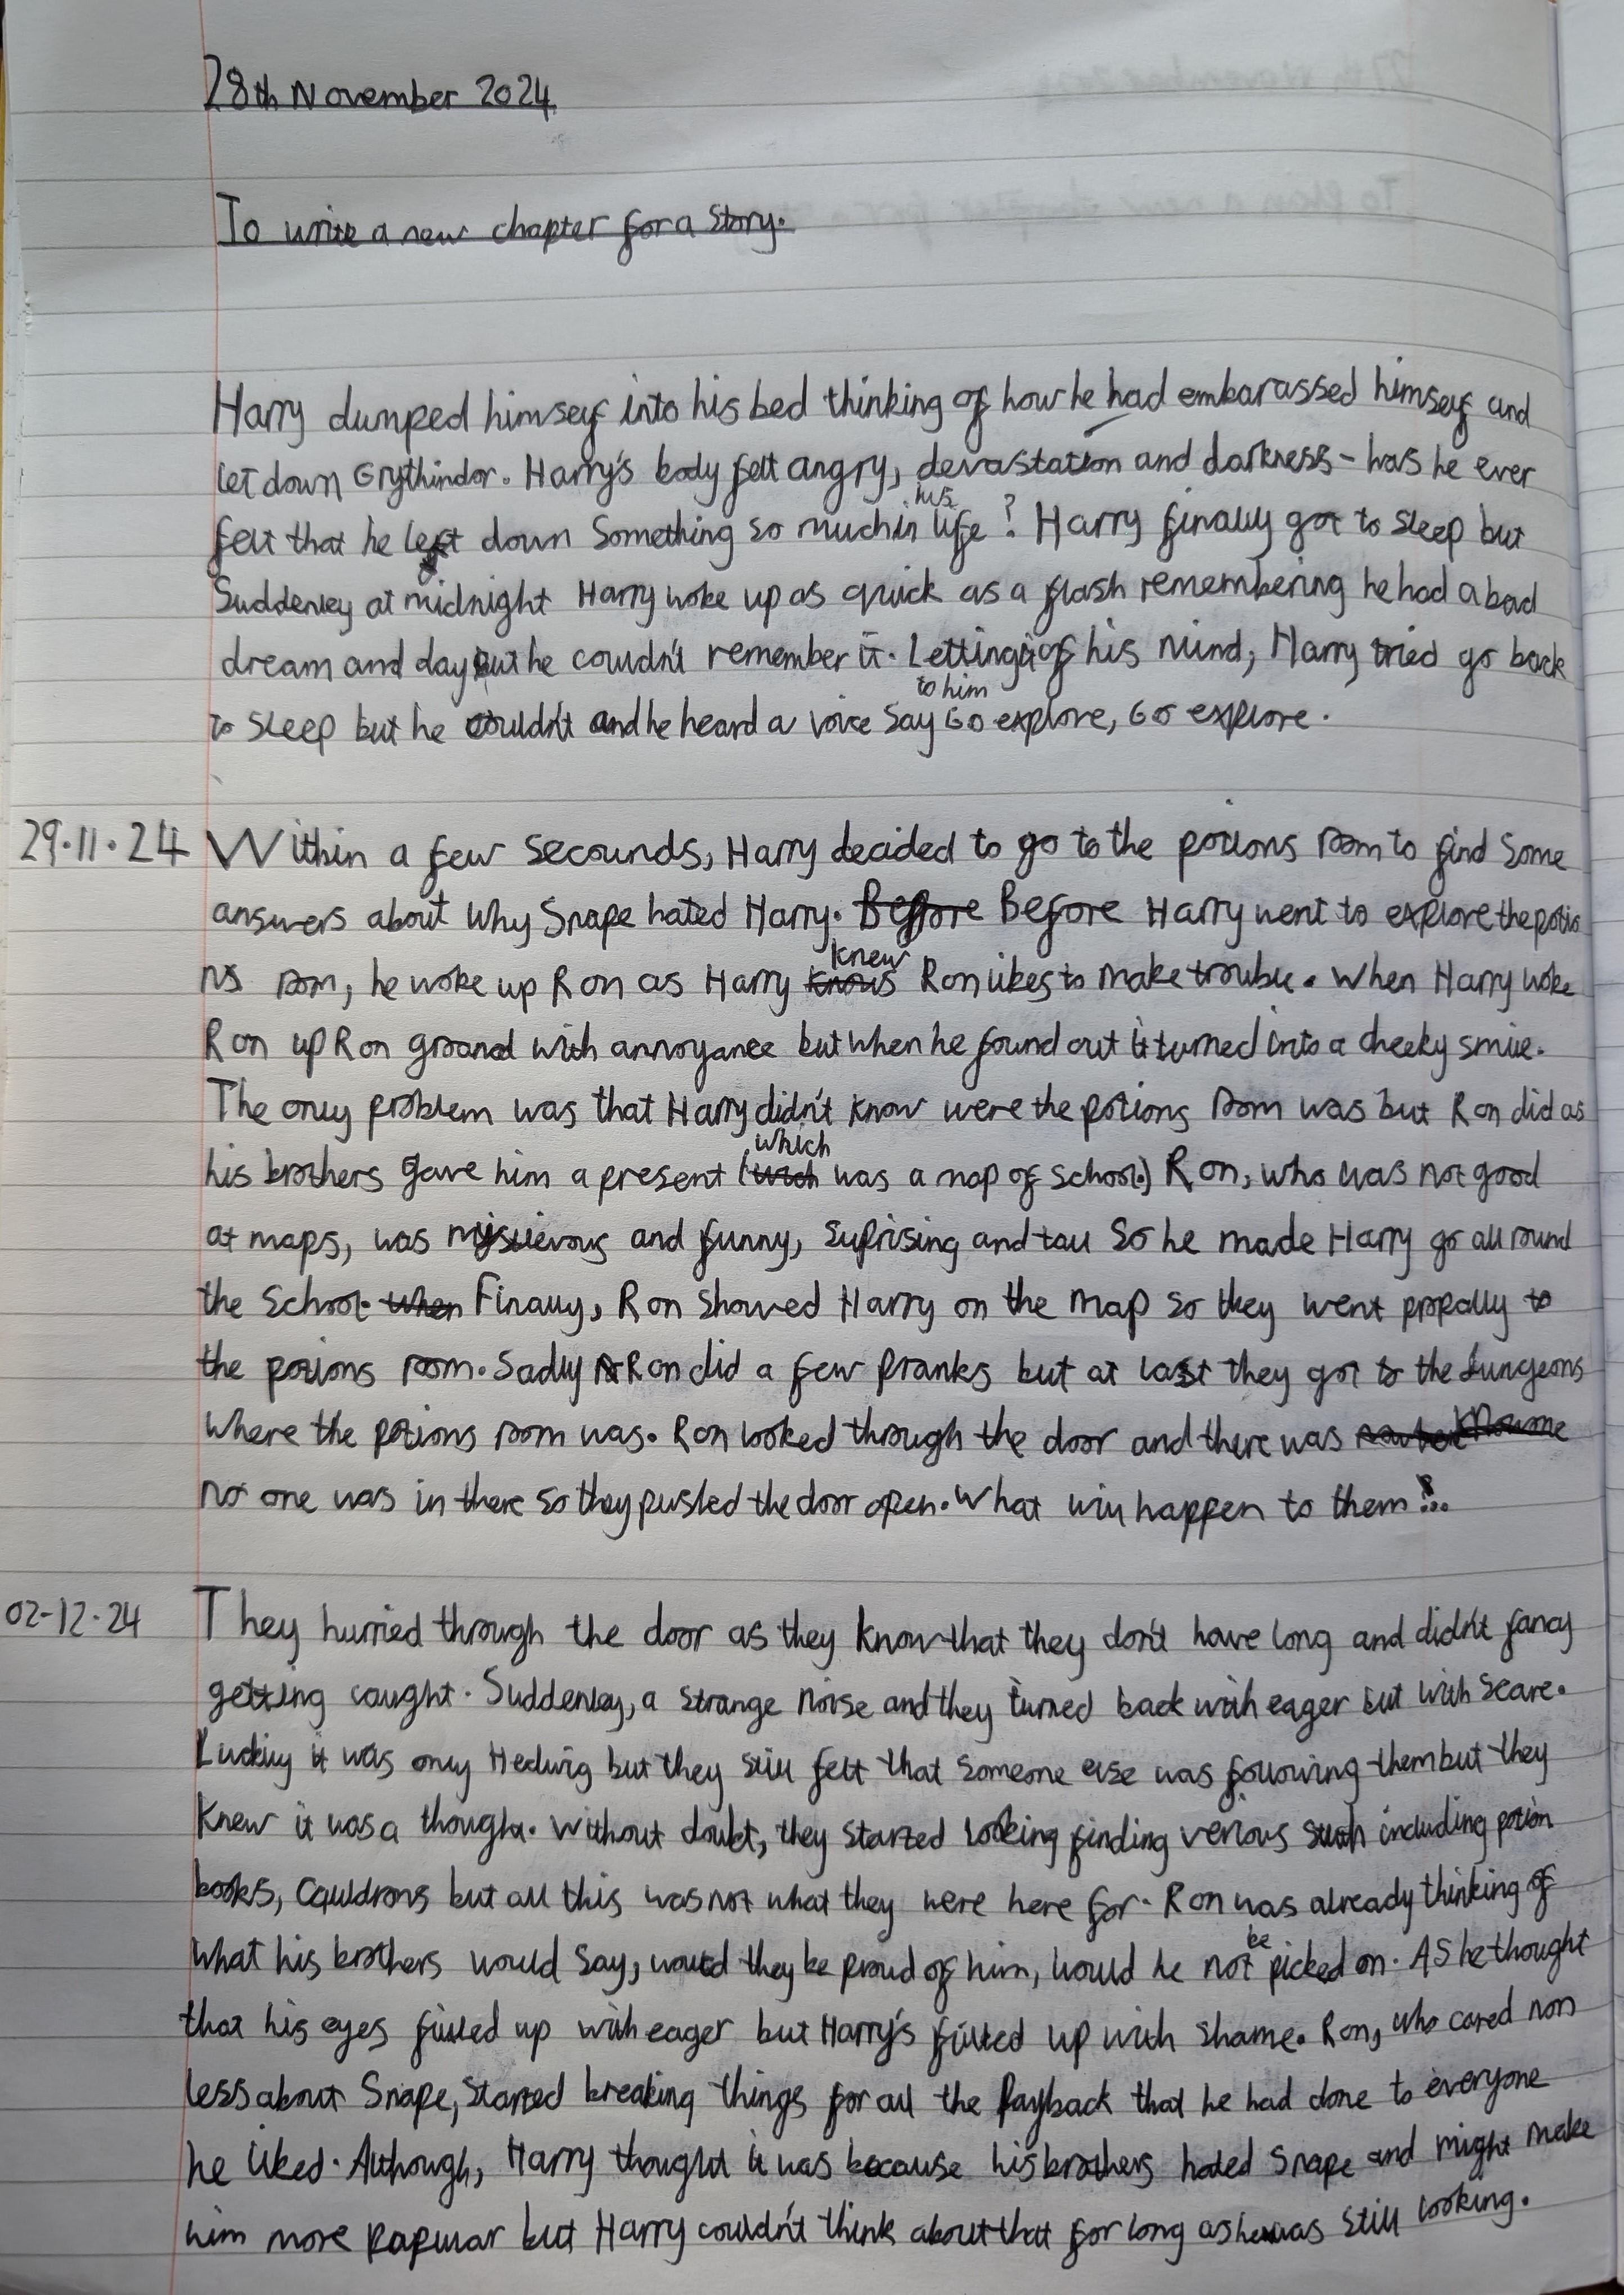 28th November 2024
To write a new chapter for a story.
Harry dumped himself into his bed thinking of how he had embarassed himself and
let down Grythindor. Harry's body felt angry, devastation and darkness - has he ever
felt that he left down something so much in his life? Harry finally got to sleep but
Suddenley at midnight Harry woke up as quick as a flash remembering he had a bad
dream and day but he couldn't remember it. Letting it of his mind, Harry tried go back
to sleep but he couldn't and he heard a voice say to him Go explore, Go explore.
29.11.24 Within a few secounds, Harry decided to go to the potions room to find some
answers about why Snape hated Harry. Before Before Harry went to explore the potio
ns room, he woke up Ron as Harry knows knew Ron likes to make trouble. When Harry woke
Ron up Ron groaned with annoyance but when he found out it turned into a cheeky smile.
The only problem was that Harry didn't know were the potions room was but Ron did as
his brothers gave him a present (wich which was a map of school.) Ron, who was not good
at maps, was misievous and funny, suprising and tall So he made Harry go all round
the school. when Finally, Ron showed Harry on the map so they went propally to
the potions room. Sadly Ron did a few pranks but at last they got to the dungeons
where the potions room was. Ron looked through the door and there was
no one was in there so they pushed the door open. What will happen to them?...
02-12.24 They hurried through the door as they know that they don't have long and didn't fancy
getting caught. Suddenley, a strange noise and they turned back with eager but with scare.
Luckily it was only Hedwig but they still felt that someone else was following them but they
knew it was a thought. Without doubt, they started looking finding verious stuff including potion
books, cauldrons but all this was not what they were here for. Ron was already thinking of
what his brothers would say, would they be proud of him, would he not be picked on. As he thought
that his eyes filled up with eager but Harry's filled up with shame. Ron, who cared non
less about Snape, started breaking things for all the payback that he had done to everyone
he liked. Although, Harry thought it was because his brothers hated Snape and might make
him more popular but Harry couldn't think about that for long as he was still looking.